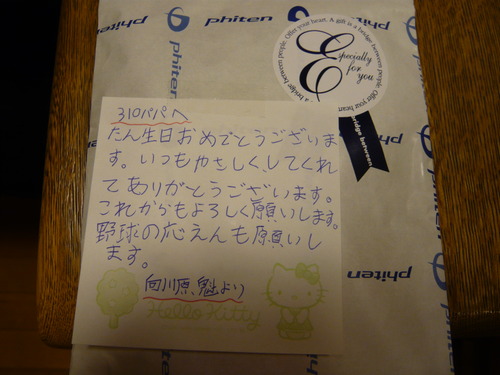 phiten
phiten
phiten
A gift is a bridge between people. Offer your heart.
Especially
for you
bridge between
310パパへ
たん生日おめでとうございま
す。いつもやさしく、してくれ
てありがとうございます。
これからもよろしく願いします。
野球の応えんも願いし
ます。
向川原魁より
Hello Kitty
phiten
phiten
phiten
phiten